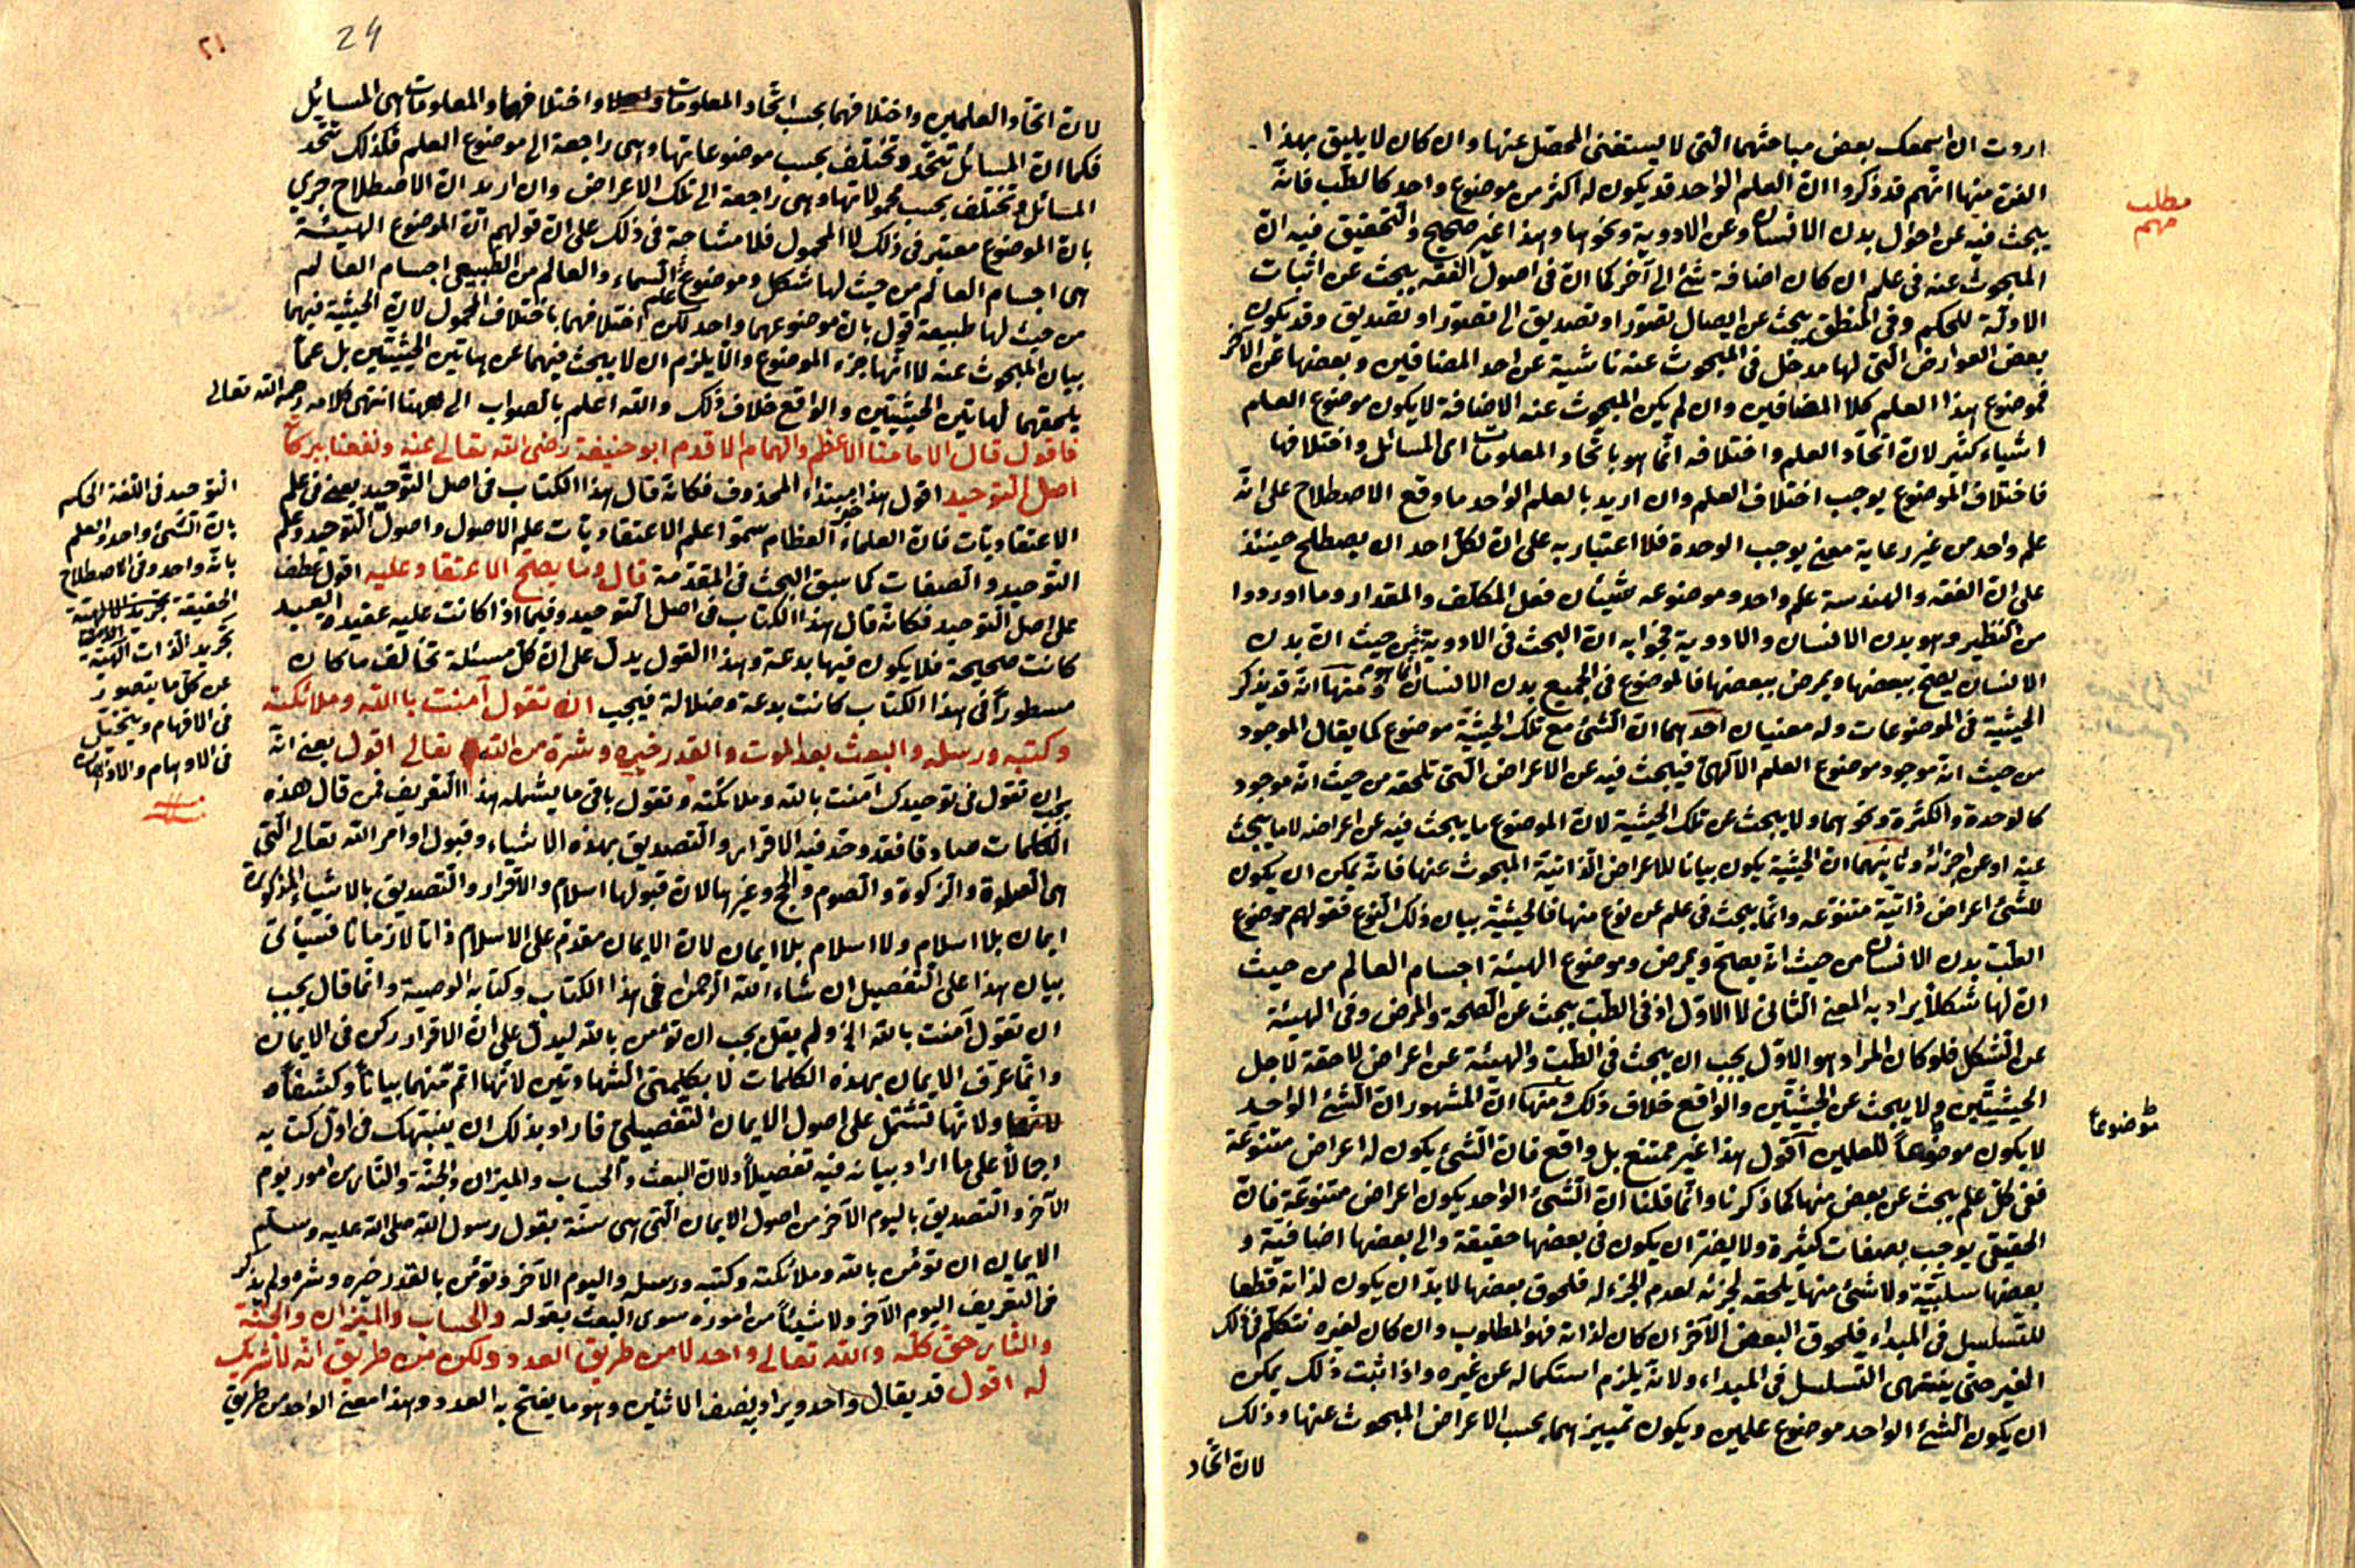 اردت ان اسمعك بعض مباحثهما التي لا يستغنى المحصّل عنها وان كان لا يليق بهذا
الفن منها انهم قد ذكروا ان العلم الواحد قد يكون له اكثر من موضوع واحد كالطب فانه
يبحث فيه عن احوال بدن الانسان وعن الادوية ونحوها وهذا غير صحيح والتحقيق فيه ان
المبحوث عنه في علم ان كان اضافة شئ الى آخر كما ان في اصول الفقه يبحث عن اثبات
الادلة للحكم وفي المنطق يبحث عن ايصال تصور او تصديق الى تصور او تصديق وقد يكون
بعض العوارض التي لها مدخل في المبحوث عنه ناشية عن احد المضافين وبعضها عن الآخر
فموضوع هذا العلم كلا المضافين وان لم يكن المبحوث عنه الاضافة لا يكون موضوع العلم
اشياء كثير لان اتحاد العلم واختلافه انما هو باتحاد المعلومات اى المسائل واختلافها
فاختلاف الموضوع يوجب اختلاف العلم وان اريد بالعلم الواحد ما وقع الاصطلاح على انه
علم واحد من غير رعاية معنى يوجب الوحدة فلا اعتبار به على ان لكل احد ان يصطلح حينئذ
على ان الفقه والهندسة علم واحد وموضوعه شيئان فعل المكلف والمقدار وما اوردوا
من النظير وهو بدن الانسان والادوية فجوابه ان البحث في الادوية من حيث ان بدن
الانسان يصح ببعضها ويمرض ببعضها فالموضوع في الجميع بدن الانسان ومنها انه قد يذكر
الحيثية في الموضوعات وله معنيان احدهما ان الشئ مع تلك الحيثية موضوع كما يقال الموجود
من حيث انه موجود موضوع العلم الالهى فيبحث فيه عن الاعراض التي تلحقه من حيث انه موجود
كالوحدة والكثرة ونحوهما ولا يبحث عن تلك الحيثية لان الموضوع ما يبحث فيه عن اعراضه لا ما يبحث
عنه او عن اجزائه وثانيهما ان الحيثية يكون بيانا للاعراض الذاتية المبحوث عنها فانه يمكن ان يكون
للشئ اعراض ذاتية متنوعة وانما يبحث في علم عن نوع منها فالحيثية بيان ذلك النوع فقولهم موضوع
الطب بدن الانسان من حيث انه يصح ويمرض وموضوع الهيئة اجسام العالم من حيث
ان لها شكلا يراد به المعنى الثاني لا الاول اذ في الطب يبحث عن الصحة والمرض وفي الهيئة
عن الشكل فلو كان المراد هو الاول يجب ان يبحث في الطب والهيئة عن اعراض لاحقة لاجل
الحيثيتين ولا يبحث عن الحيثيتين والواقع خلاف ذلك ومنها ان المشهور ان الشئ الواحد
لا يكون موضوعا للعلمين اقول هذا غير ممتنع بل واقع فان الشئ يكون له اعراض متنوعة
ففي كل علم يبحث عن بعض منها كما ذكرنا وانما قلنا ان الشئ الواحد يكون اعراض متنوعة فان
الحقيقي يوجب بصفات كثيرة ولا يضر ان يكون في بعضها حقيقة والى بعضها اضافية و
بعضها سلبية ولا شئ منها يلحقه لجزئه لعدم الجزء له فلحوق بعضها لا بد ان يكون لذاته قطعا
للتسلسل في المبداء فلحوق البعض الآخر ان كان لذاته فهو المطلوب وان كان لغيره نتكلم في ذلك
الغير حتى ينتهى التسلسل في المبداء ولانه يلزم استكماله عن غيره واذا ثبت ذلك يمكن
ان يكون الشئ الواحد موضوع علمين ويكون تمييزهما بحسب الاعراض المبحوث عنها وذلك
لان اتحاد
مطلب
مهم
موضوعا
٢١
24
لان اتحاد العلمين واختلافهما بحسب اتحاد المعلومات واختلافها والمعلومات هي المسائل
فكما ان المسائل تتحد وتختلف بحسب موضوعاتها وهي راجعة الى موضوع العلم فكذلك تتحد
المسائل وتختلف بحسب محمولاتها وهي راجعة الى تلك الاعراض وان اريد ان الاصطلاح جري
بان الموضوع معتبر في ذلك لا المحمول فلا مشاحة في ذلك على ان قولهم ان الموضوع الهيئة
هي اجسام العالم من حيث لها شكل وموضوع علم السماء والعالم من الطبيعي اجسام العالم
من حيث لها طبيعة قول بان موضوعهما واحد لكن اختلافهما باختلاف المحمول لان الحيثية فيهما
بيان المبحوث عنه لا انها جزء الموضوع والا يلزم ان لا يبحث فيهما عن هاتين الحيثيتين بل عما
يلحقهما لهاتين الحيثيتين والواقع خلاف ذلك والله اعلم بالصواب الى ههنا انتهى كلامه رحمه الله تعالى
فاقول قال الامامنا الاعظم والهمام الاقدم ابو حنيفة رضى الله تعالى عنه ونفعنا ببركاته
اصل التوحيد اقول هذا خبر مبتداء المحذوف فكانه قال هذا الكتاب في اصل التوحيد يعني في علم
الاعتقاديات فان العلماء العظام سموا علم الاعتقاديات علم الاصول واصول التوحيد وعلم
التوحيد والصفات كما سبق البحث في المقدمة قال وما يصح الاعتقاد عليه اقول عطف
على اصل التوحيد فكانه قال هذا الكتاب في اصل التوحيد وفيما اذا كانت عليه عقيدة العبد
كانت صحيحة فلا يكون فيها بدعة وهذا القول يدل على ان كل مسئلة تخالف ما كان
مسطورا في هذا الكتاب كانت بدعة وضلالة فيجب ان تقول آمنت بالله وملائكته
وكتبه ورسله والبعث بعد الموت والقدر خيره وشره من الله تعالى اقول يعني انه
يجب ان تقول في توحيدك آمنت بالله وملائكته وتقول باقي ما يشمله هذا التعريف فمن قال هذه
الكلمات صادقا فقد وجد فيه الاقرار والتصديق بهذه الاشياء وقبول اوامر الله تعالى التي
هي الصلوة والزكوة والصوم والحج وغيرها لان قبولها اسلام والاقرار والتصديق بالاشياء المذكورة
ايمان بلا اسلام ولا اسلام بلا ايمان لان الايمان مقدم على الاسلام ذاتا لا زمانا فسيأتى
بيان هذا على التفصيل ان شاء الله الرحمن في هذا الكتاب وكتابه الوصية وانما قال يجب
ان تقول آمنت بالله الخ ولم يقل يجب ان تؤمن بالله ليدل على ان الاقرار ركن في الايمان
وانما عرف الايمان بهذه الكلمات لا بكلمتى الشهادتين لانها اتم منهما بيانا وكشفا
ولانها تشتمل على اصول الايمان التفصيلى فاراد بذلك ان ينبهك في اول كتابه
اجمالا على ما اراد بيانه فيه تفصيلا ولان البعث والحساب والميزان والجنة والنار من امور يوم
الآخر والتصديق باليوم الآخر من اصول الايمان التي هي ستة بقول رسول الله صلى الله عليه وسلم
الايمان ان تؤمن بالله وملائكته وكتبه ورسله واليوم الآخر وتؤمن بالقدر خيره وشره ولم يذكر
في التعريف اليوم الآخر ولا شيئا من اموره سوى البعث بقوله والحساب والميزان والجنة
والنار حق كله والله تعالى واحد لا من طريق العدد ولكن من طريق انه لا شريك
له اقول قد يقال واحد ويراد به نصف الاثنين وهو ما يفتح به العدد وهذا معنى الواحد من طريق
التوحيد في اللغة الحكم
بان الشئ واحد والعلم
بانه واحد وفي الاصطلاح
الحقيقة
تجريد الذات الالهية
عن كل ما يتصور
في الافهام ويتخيل
في الاوهام والاذهان